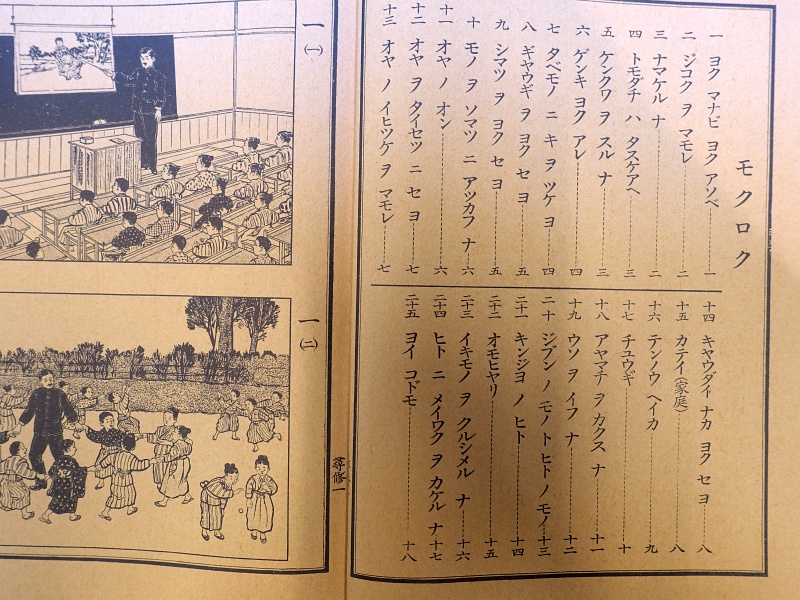 モクロク
一 ヨク マナビ ヨク アソベ 一
二 ジコク ヲ マモレ 二
三 ナマケル ナ 二
四 トモダチ ハ タスケアヘ 三
五 ケンクワ ヲ スル ナ 三
六 ゲンキ ヨク アレ 四
七 タベモノ ニ キ ヲ ツケ ヨ 四
八 ギヤウギ ヲ ヨク セ ヨ 五
九 シマツ ヲ ヨク セ ヨ 五
十 モノ ヲ ソマツ ニ アツカフ ナ 六
十一 オヤ ノ オン 六
十二 オヤ ヲ タイセツ ニ セ ヨ 七
十三 オヤ ノ イヒツケ ヲ マモレ 七
十四 キヤウダイ ナカ ヨク セ ヨ 八
十五 カテイ(家庭) 八
十六 テンノウ ヘイカ 九
十七 チユウギ 十
十八 アヤマチ ヲ カクス ナ 十一
十九 ウソ ヲ イフ ナ 十二
二十 ジブン ノ モノ ト ヒト ノ モノ 十三
二十一 キンジヨ ノ ヒト 十四
二十二 オモヒヤリ 十五
二十三 イキモノ ヲ クルシメル ナ 十六
二十四 ヒト ニ メイワク ヲ カケル ナ 十七
二十五 ヨイ コドモ 十八
尋修一
一(一)
一(二)